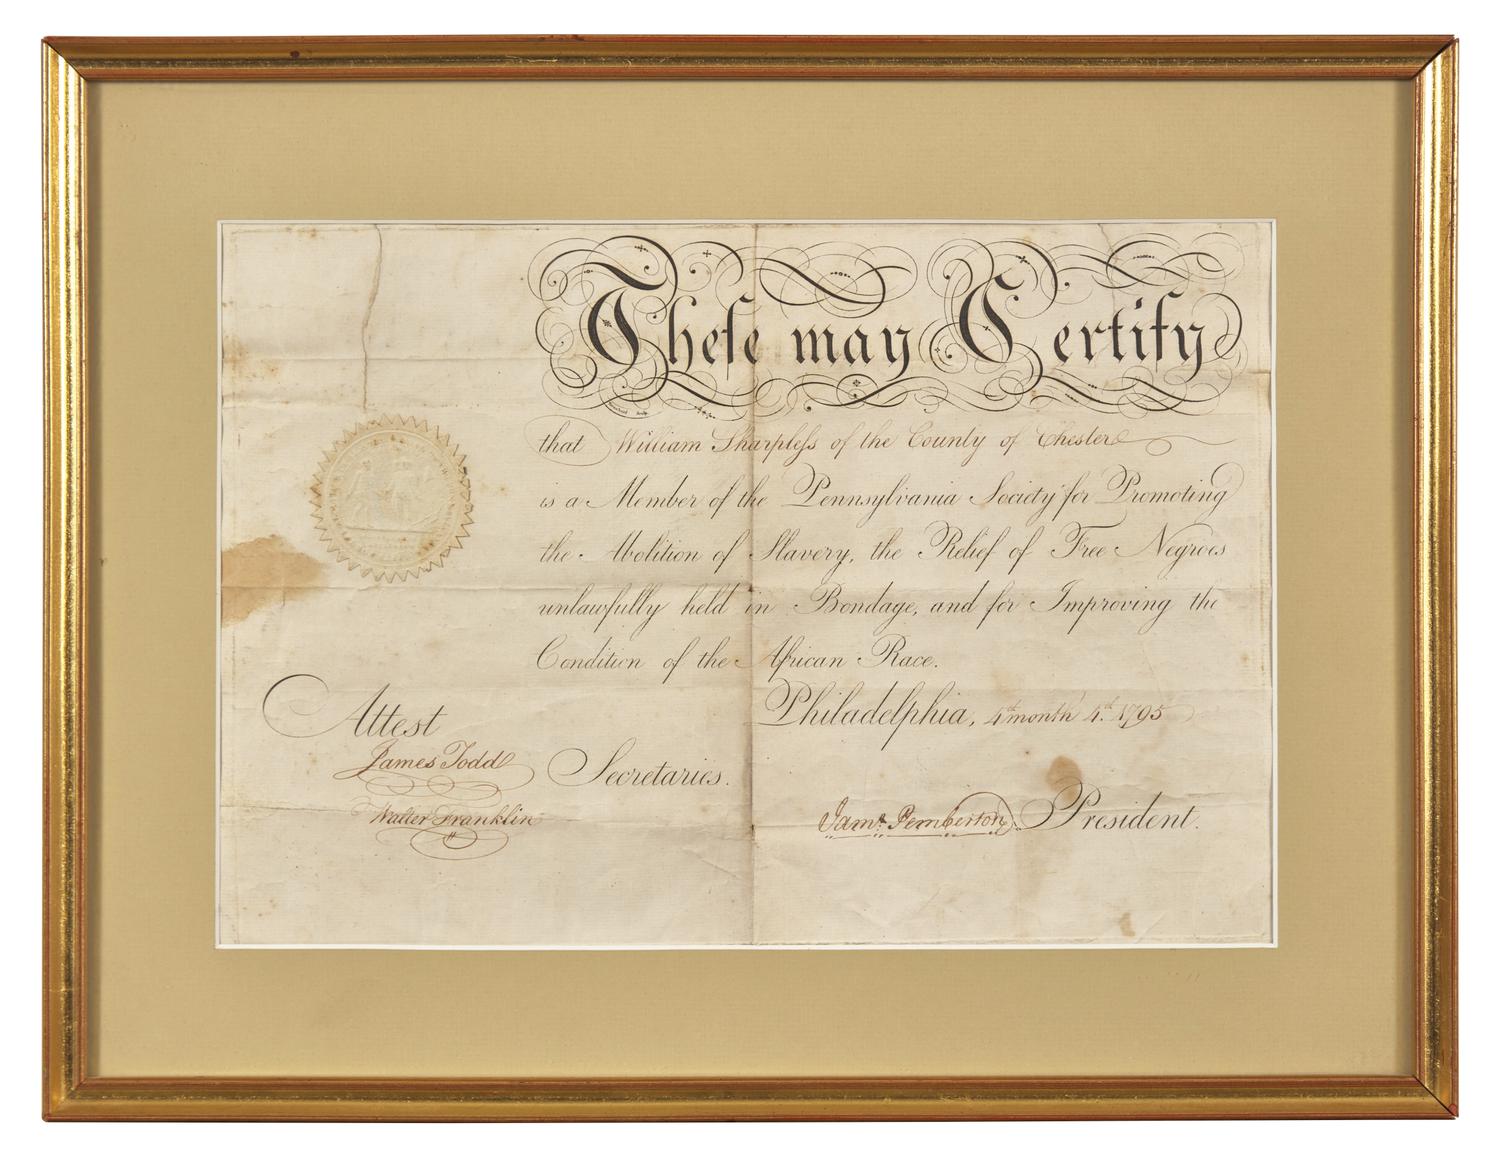 Theſe may Certify
that William Sharpleſs of the County of Chester
is a Member of the Pennsylvania Society for Promoting
the Abolition of Slavery, the Relief of Free Negroes
unlawfully held in Bondage, and for Improving the
Condition of the African Race.
Philadelphia, 4th month 4th 1795
Attest
James Todd
Secretaries.
Walter Franklin
Jams Pemberton President.